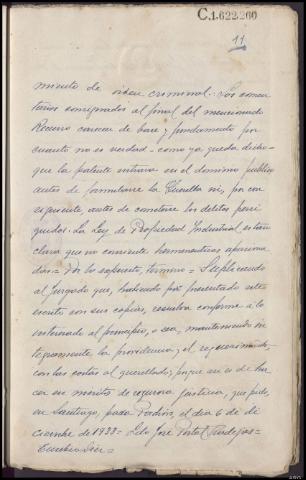 C.1.622.260
11
miento de orden criminal.- Los comen
tarios consignados al final del mencionado
Recurso carecen de base y fundamento por
cuanto no es verdad - como ya queda dicho -
que la patente entrara en el dominio público
antes de formularse la Querella ni, por con
siguiente antes de cometerse los delitos perse
guidos. La Ley de Propiedad Industrial es tan
clara que no consiente hermenéuticas apasiona
das = Por lo expuesto, termino = Suplicando
al Juzgado que, habiendo por presentado este
escrito con sus copias, resuelva conforme a lo
interesado al principio, o sea, manteniendo ín
tegramente la providencia y el requerimiento,
con las costas al querellado; porque así es de ha
cer en méritos de rigurosa justicia, que pido,
en Santiago, para Padrón, el día 6 de di
ciembre de 1933 = Ldo José Portal
Eusebio